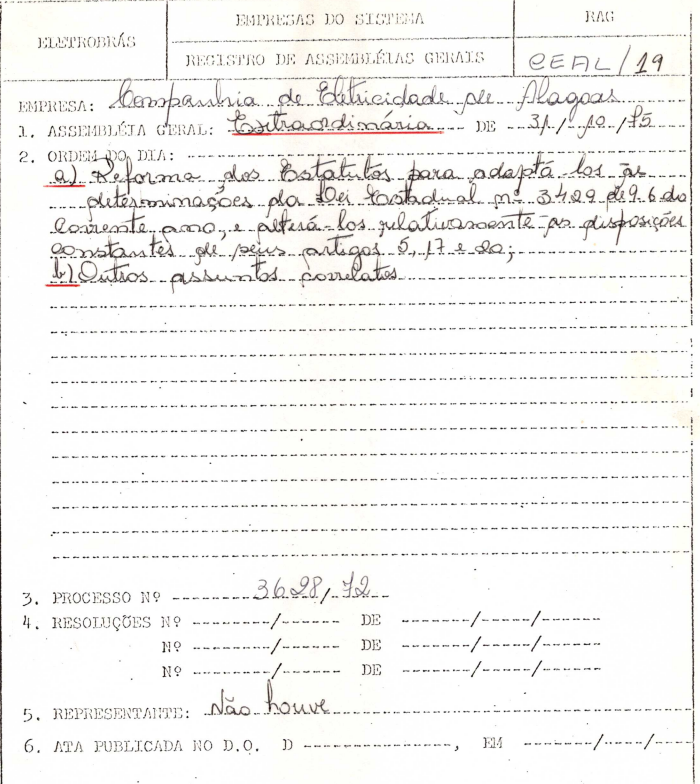 ELETROBRÁS
EMPRESAS DO SISTEMA
REGISTRO DE ASSEMBLÉIAS GERAIS
RAG
CEAL/19
EMPRESA: Companhia de Eletricidade de Alagoas
1. ASSEMBLÉIA GERAL: Extraordinária DE 31/10/75
2. ORDEM DO DIA:
a) Reforma dos Estatutos para adaptá los às
determinações da Lei Estadual nº 3429 de 9.6 do
corrente ano, e alterá-los relativamente as disposições
constantes de seus artigos 5, 17 e 20;
b) Outros assuntos correlatos
3. PROCESSO Nº 3628/72
4. RESOLUÇÕES Nº / DE / /
Nº / DE / /
Nº / DE / /
5. REPRESENTANTE: Não houve
6. ATA PUBLICADA NO D.O. D , EM / /